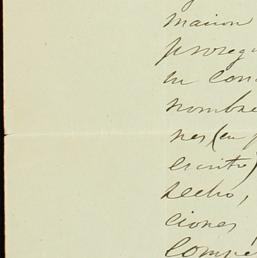 macion
proseg
en con
nombre
nes (en p
escrito)
hecho,
ciones
compe